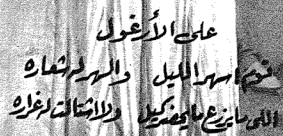 على الأرغول
قوم اسهر الليل والسهر له شعاره
اللي ما يزرع ما يحصد كيل ولا اشتالت له غراره